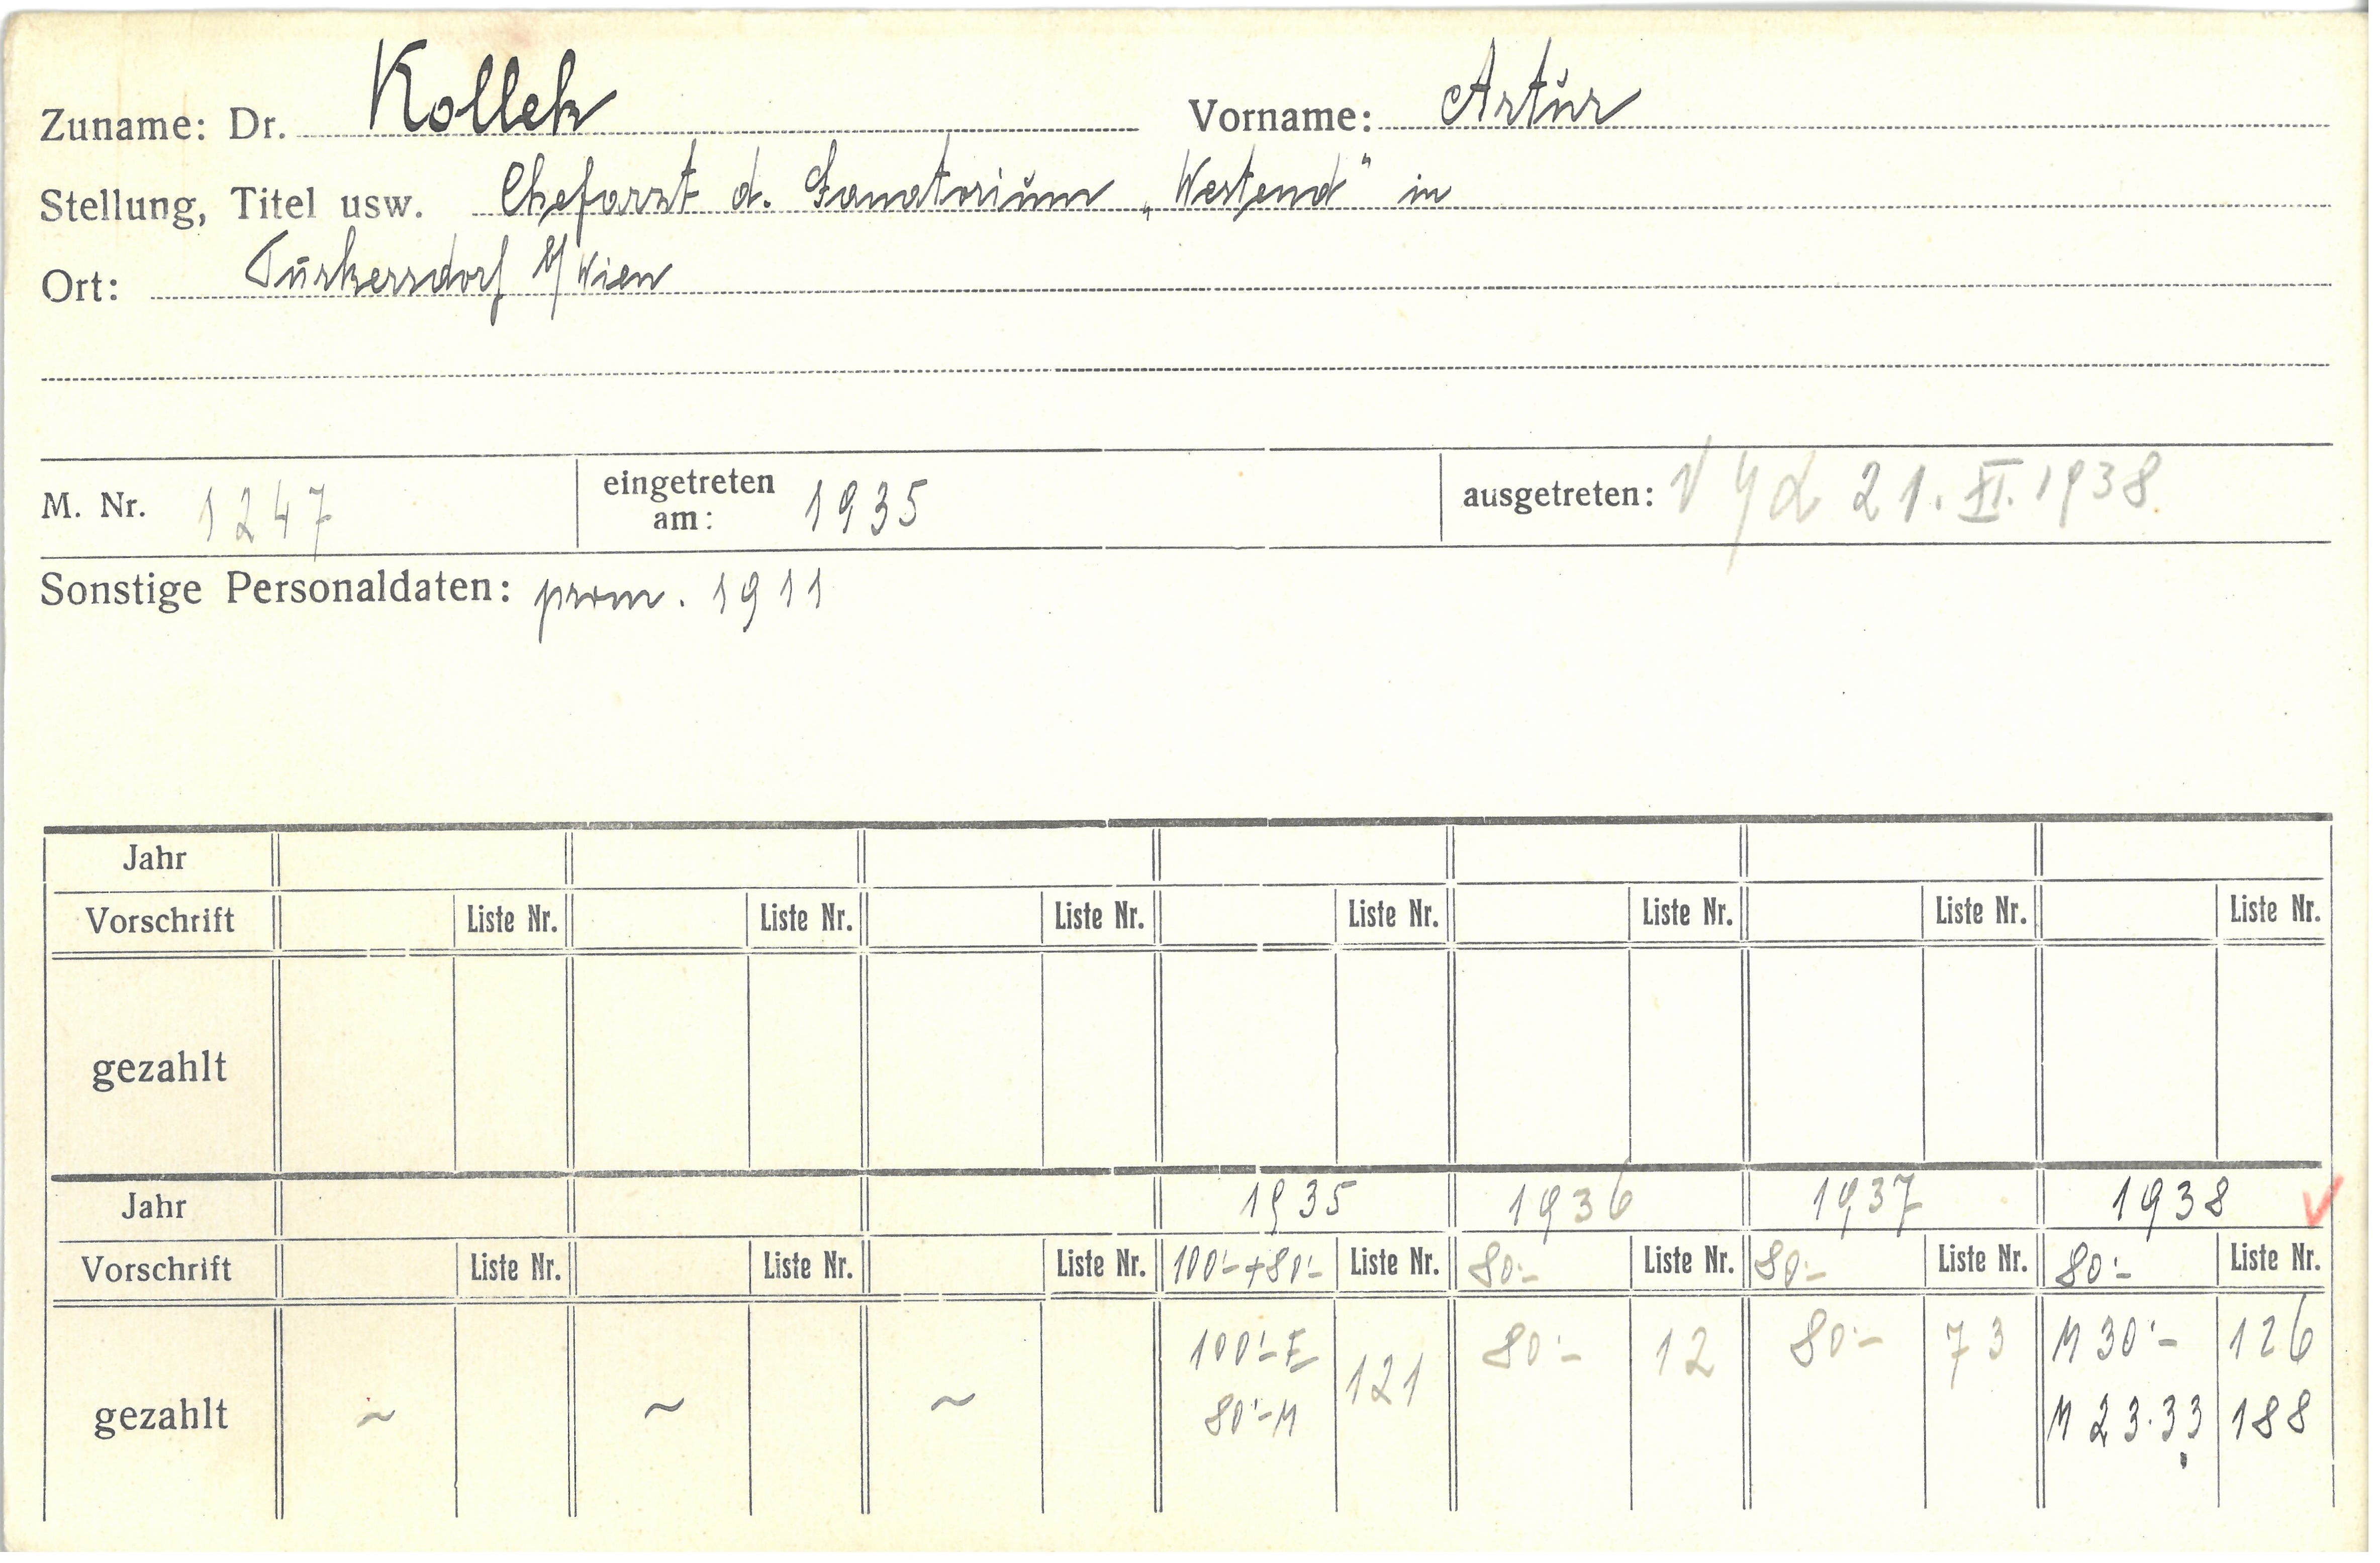 Zuname: Dr. Kollek Vorname: Artur
Stellung, Titel usw. Chefarzt d. Sanatorium „Westend" in
Ort: Purkersdorf b/Wien
M. Nr. 1247 eingetreten am: 1935 ausgetreten: 21. XI. 1938
Sonstige Personaldaten: prom. 1911
Jahr
Vorschrift Liste Nr. Liste Nr. Liste Nr. Liste Nr. Liste Nr. Liste Nr. Liste Nr.
gezahlt
Jahr 1935 1936 1937 1938
Vorschrift Liste Nr. Liste Nr. Liste Nr. 100'- + 80'- Liste Nr. 80'- Liste Nr. 80'- Liste Nr. 80'- Liste Nr.
gezahlt ~ ~ ~ 100'- E 121 80'- 12 80'- 73 M 30'- 126
80'- M M 23.33 188